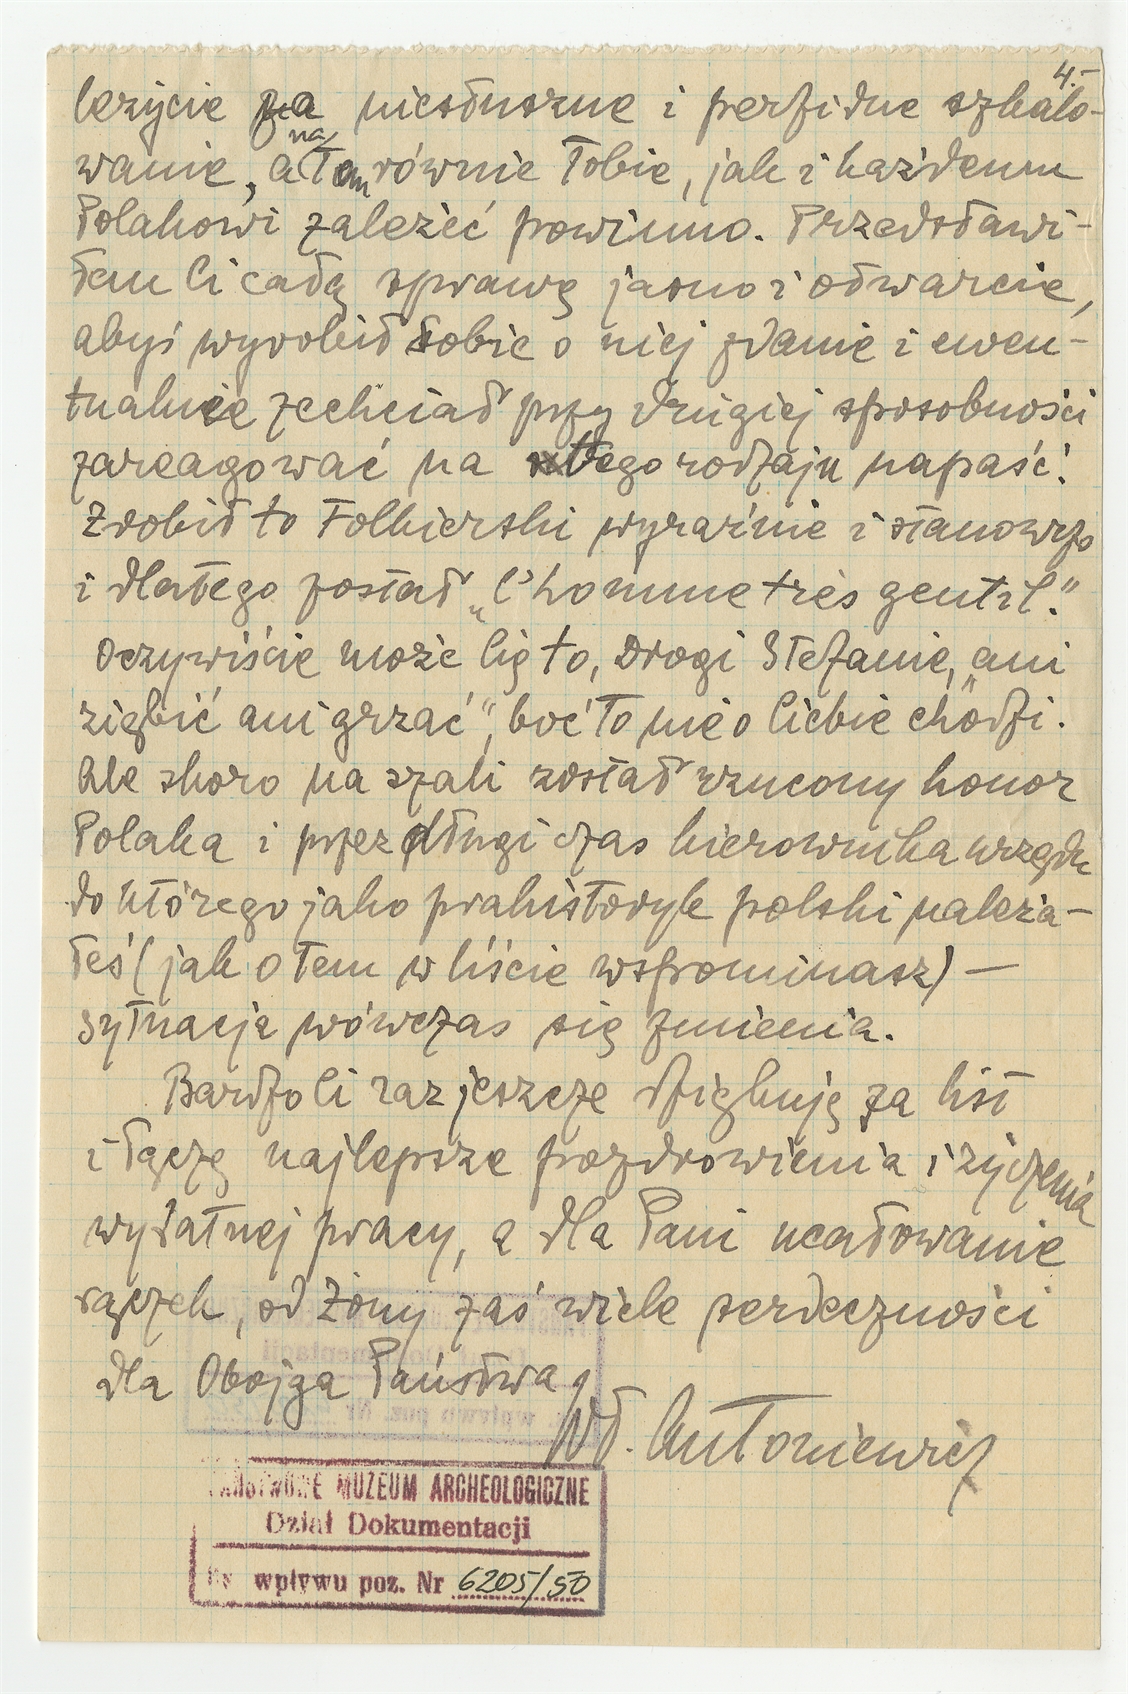 4.-
leżycie na niesłuszne i perfidne szkalo-
wanie, a na tem równie Tobie, jak i każdemu
Polakowi zależeć powinno. Przedstawi-
łem Ci całą sprawę jasno i otwarcie,
abyś wyrobił sobie o niej zdanie i ewen-
tualnie zechciał przy drugiej sposobności
zareagować na tego rodzaju napaść.
Zrobił to Folkierski wyraźnie i stanowczo
i dlatego został „l'homme très gentil."
Oczywiście może Cię to, Drogi Stefanie, „ani
ziębić ani grzać", boć to nie o Ciebie chodzi.
Ale skoro na szali został rzucony honor
Polaka i przez długi czas kierownika urzędu
do którego jako prahistoryk polski należa-
łeś (jak o tem w liście wspominasz) —
sytuacja wówczas się zmienia.
Bardzo Ci raz jeszcze dziękuję za list
i łączę najlepsze pozdrowienia i życzenia
wydatnej pracy, a dla Pani ucałowanie
rączek, od Żony zaś wiele serdeczności
dla Obojga Państwa
Wł. Antoniewicz
PAŃSTWOWE MUZEUM ARCHEOLOGICZNE
Dział Dokumentacji
Ks. wpływu poz. Nr 6205/50